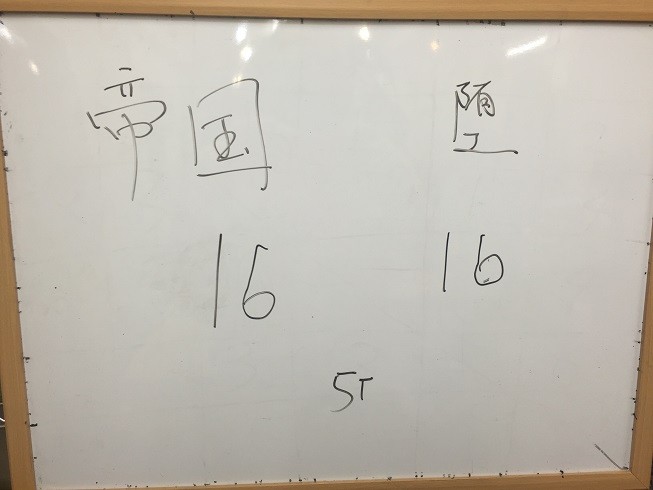 帝国 堕
16 16
5T